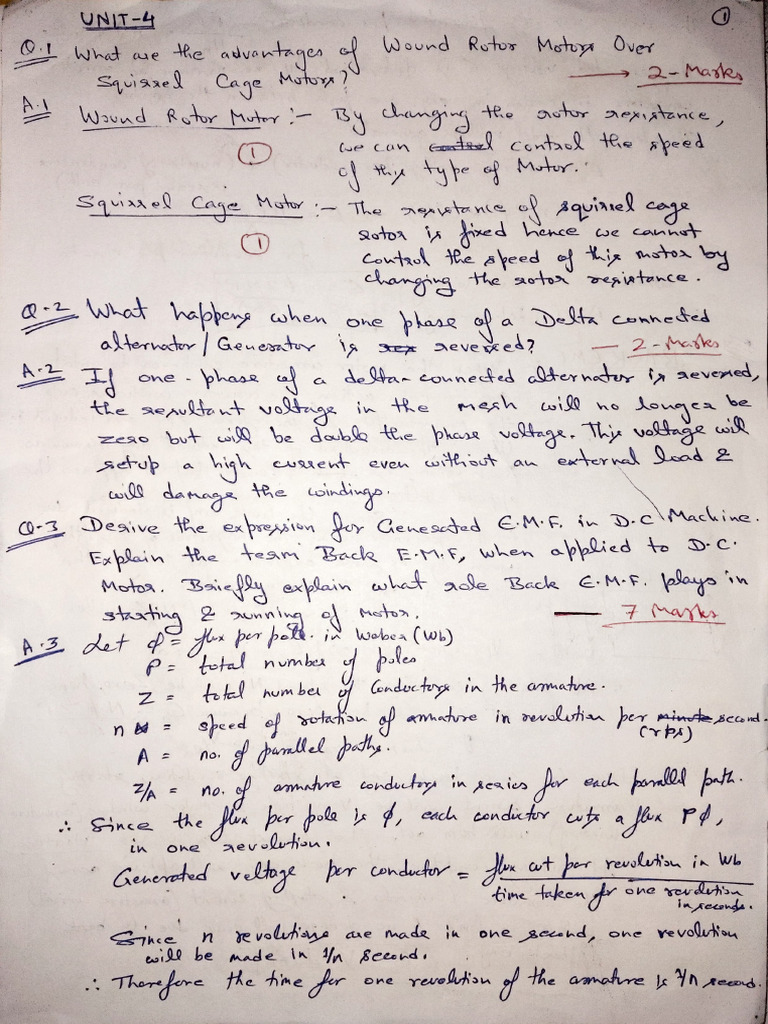 UNIT-4
1
Q.1 What are the advantages of Wound Rotor Motors Over
Squirrel Cage Motors? → 2-Marks
A.1 Wound Rotor Motor :- By changing the rotor resistance,
1 we can control control the speed
of this type of Motor.
Squirrel Cage Motor :- The resistance of squirrel cage
1 rotor is fixed hence we cannot
control the speed of this motor by
changing the rotor resistance.
Q-2 What happens when one phase of a Delta connected
alternator/Generator is rev reversed? — 2-Marks
A.2 If one-phase of a delta-connected alternator is reversed,
the resultant voltage in the mesh will no longer be
zero but will be double the phase voltage. This voltage will
setup a high current even without an external load &
will damage the windings.
Q-3 Derive the expression for Generated E.M.F. in D.C Machine.
Explain the term Back E.M.F, when applied to D.C.
Motor. Briefly explain what role Back E.M.F. plays in
starting & running of motor. — 7 Marks
A.3 Let ϕ = flux per pole in Weber (Wb)
P = total number of poles
Z = total number of Conductors in the armature.
n = speed of rotation of armature in revolution per minute second.
(rps)
A = no. of parallel paths.
Z/A = no. of armature conductors in series for each parallel path.
∴ Since the flux per pole is ϕ, each conductor cuts a flux Pϕ,
in one revolution.
Generated voltage per conductor = flux cut per revolution in Wb
time taken for one revolution
in seconds.
Since n revolutions are made in one second, one revolution
will be made in 1/n second.
∴ Therefore the time for one revolution of the armature is 1/n second.